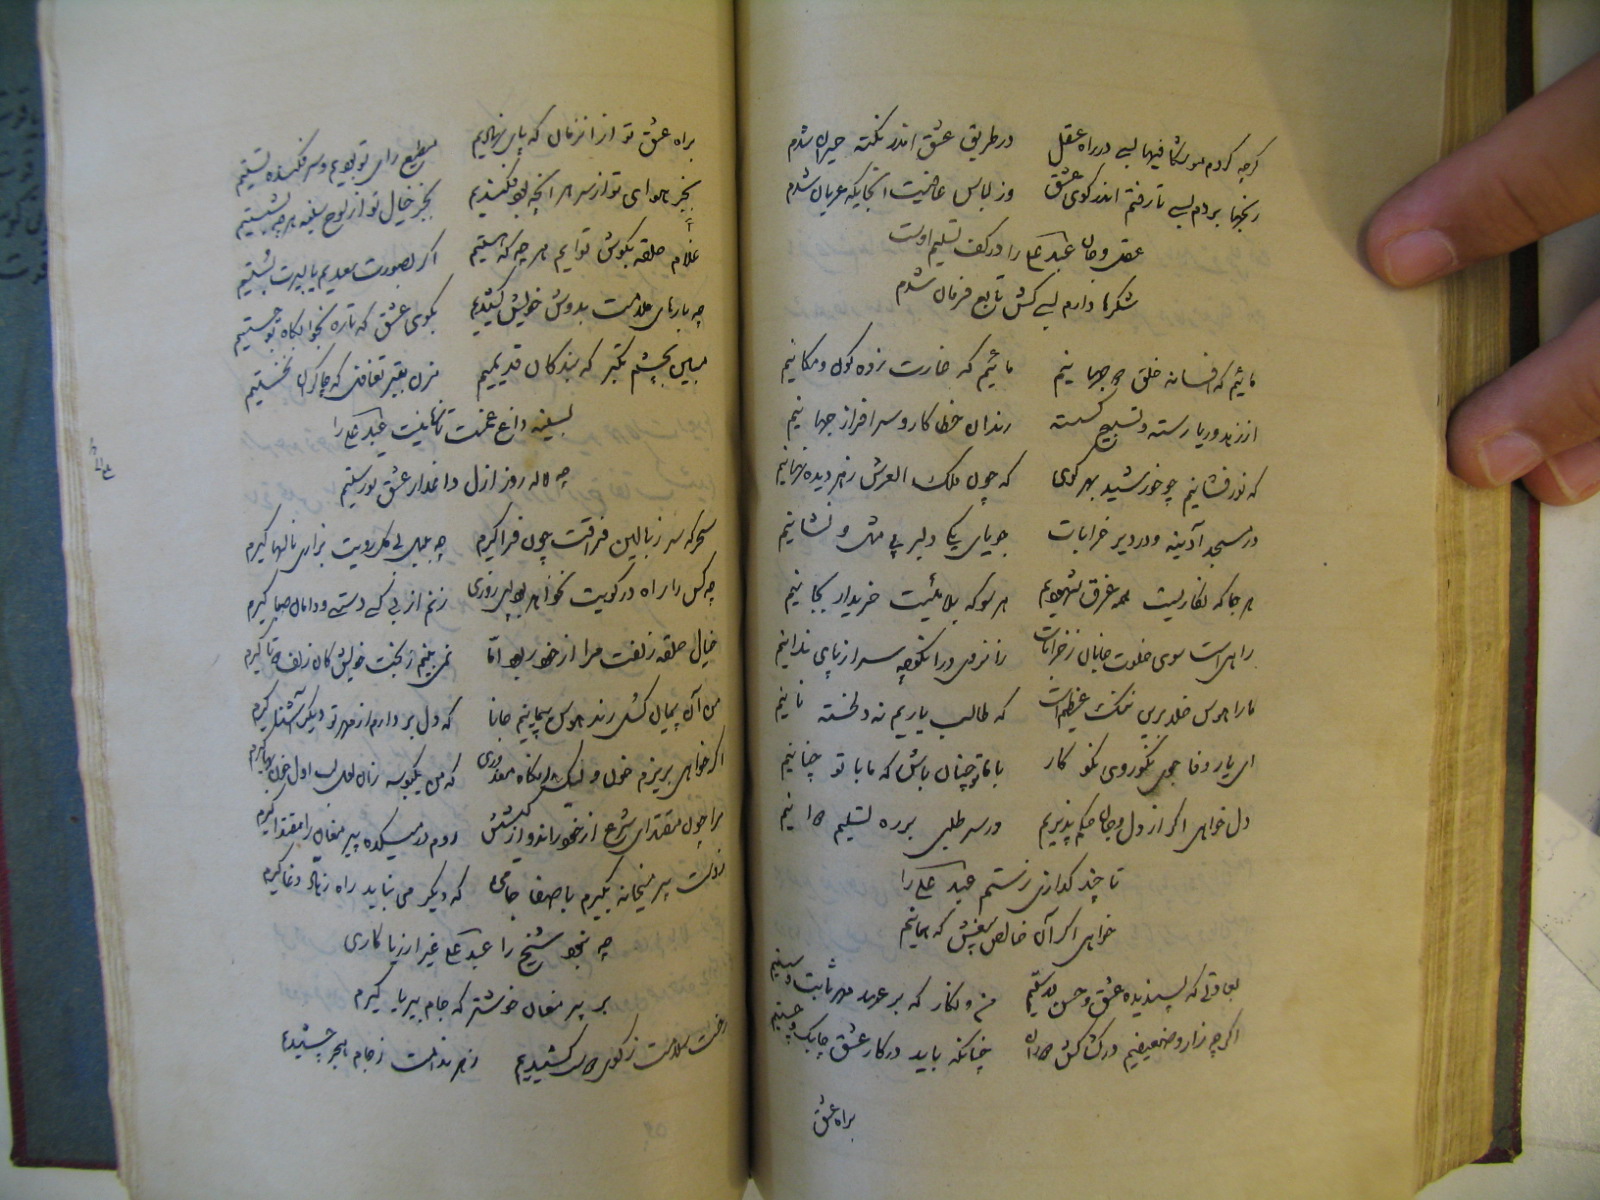 گرچه کردم موشکافیها بسی در راه عقل در طریق عشق اندر نکته حیران شدم
رنجها بردم بسی تا رفتم اندر کوی عشق وز لباس عافیت آنجایکه عریان شدم
عقل و جان عبد علی را در کف تسلیم اوست
شکرها دارم بسی کش تابع فرمان شدم
مائیم که افسانه خلق جهانیم مائیم که غارت زده کون و مکانیم
از زهد و ریا رسته و تسبیح گسسته رندان خطا کار و سرافراز جهانیم
که نور فشانیم چو خورشید بهر کوی که چون ملک العرش ز هر دیده نهانیم
در مسجد آدینه و در دیر خرابات جویای یکی دلبر بی مثل و نشانیم
هر جا که نگاریست همه غرق شهودیم هر سو که بلائیست خریدار بجانیم
راهی است سوی خلوت جانان ز خرابات زانروی در آن کوچه سر از پای ندانیم
ما را هوس خلد برین ننگ عظیم است که طالب یاریم نه دلخسته نانیم
ای یار وفا جوی نکوروی نکو کار با ما تو چنان باش که ما با تو چنانیم
دل خواهی اگر از دل و جان حکم پذیریم ور سر طلبی بر ره تسلیم روانیم
تا چند گدازی ز ستم عبد علی را
خواهی اگر آن خالص بیغش که همانیم
من و نگار که بر عهد مهر ثابت و
اگرچه زار و ضعیفیم در کشاکش دوران چنانکه باید در کار عشق چابک و چستیم
براه عشق
براه عشق تو از آنزمان که پای نهادیم مطیع رای تو بودیم و سر فکنده تسلیم
بجز هوای تو از سر هر آنچه بود فکندیم بجز خیال تو از لوح سینه هرچه بشستیم
غلام حلقه بگوش توایم هر چه که هستیم اگر بصورت
چه بارهای ملامت بدوش خویش کشیدیم بکوی عشق که تا ره بخوابگاه تو جستیم
مبین بچشم تکبر که بندگان قدیمیم مزن بتیر تغافل که چاکران نخستیم
بسینه داغ غمت تا نهانیت عبد علی را
چه لاله روز ازل داغدار عشق تو رستیم
سحر که سر ز بالین فراقت چون فرا گیرم چه بلبل بی گل رویت هزاران نالها گیرم
چه کس را راه در کویت نخواهد بود روزی زنم از بی کسی دستی و دامان صبا گیرم
خیال حلقه زلفت مرا از خود ربود اما نمی بینم ز بخت خویش کان زلف دوتا گیرم
من آن پیمان کسل رند هوس پیما نیم جانا که دل بر دارم از مهر تو دیگر آشنا گیرم
اگر خواهی بریزم خون و لیک که من یکبوسه زان لعل لب اول خون بها گیرم
مرا چون مقتدای شرع از خود راند و از روم در میکده پیر مغان را مقتدا گیرم
ز دست پیر میخانه بگیرم با صفا جامی که دیگر می نباید راه
چه نبود شیخ را عبد علی غیر از ریا کاری
بر پیر مغان خوشتر که جام بیریا گیرم
رخت سلامت ز کوی کشیدیم زهر ندامت ز جام هجر چشیدیم